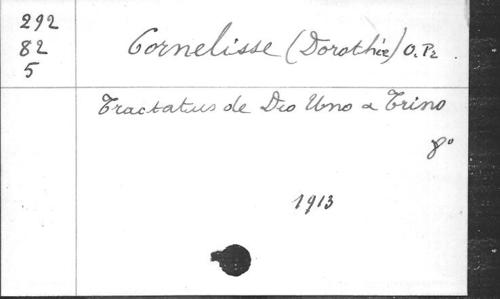 292
82
5
Cornelisse (Dorothée) O. Pr
Tractatus de Deo Uno a Trino
8°
1913